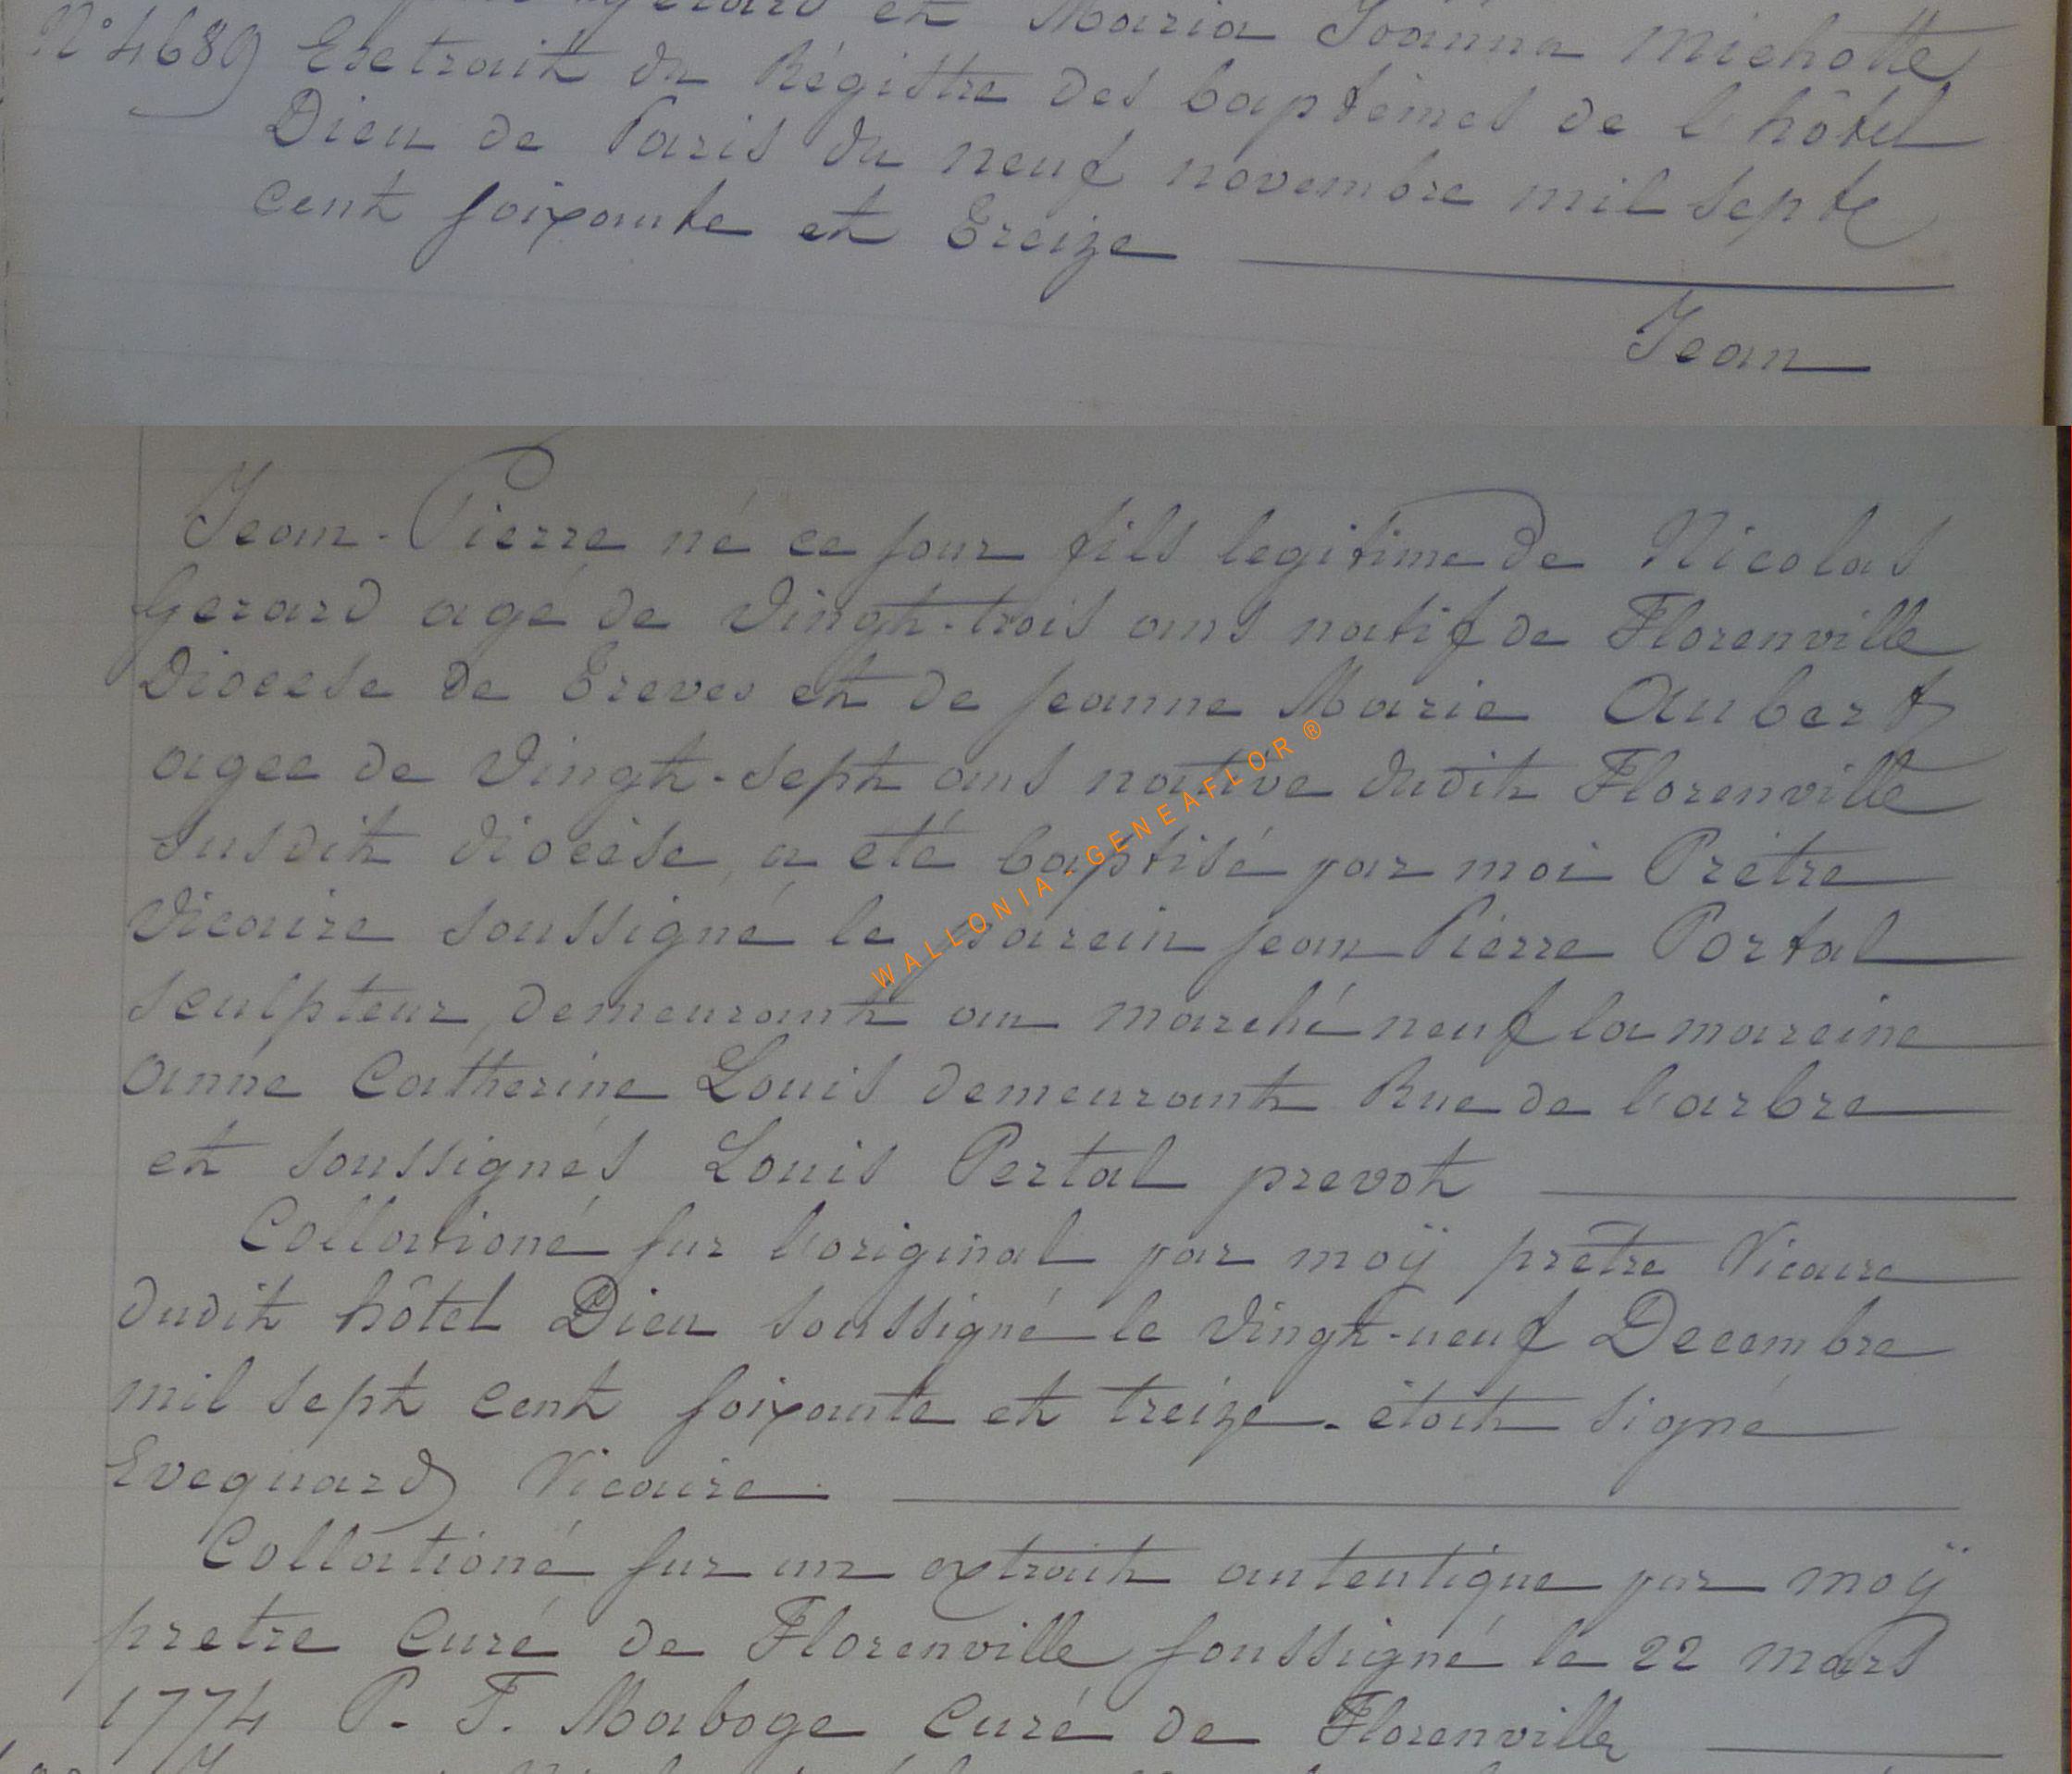 Gerard et Maria Joanna Michotte
N° 4689 Exetrait du Régistre des baptêmes de l'hôtel
Dieu de Paris du neuf novembre mil septe
cent soixante et Treize
Jean
Jean-Pierre né ce jour fils legitime de Nicolas
Gerard agé de vingt-trois ans natif de Florenville
Diocese de Treves et de jeanne Marie Aubert
agee de vingt-sept ans native dudit Florenville
susdit diocèse, a été baptisé par moi Prêtre
Vicaire soussigné le parein jean Pierre Portal
sculpteur, demeurant au marché neuf la mareine
anne Catherine Louis demeurant Rue de l'arbre
et soussignés Louis Pertal prevot
Collationé sur l'original par moÿ prêtre Vicaire
dudit hôtel Dieu soussigné le vingt-neuf Decembre
mil sept cent soixante et treize. étoit signé
Eveguard Vicaire
Collationé sur un extrait autentique par moÿ
pretre Curé de Florenville soussigné le 22 mars
1774 P. F. Maboge Curé de Florenville
WALLONIA - GENEAFLOR ®